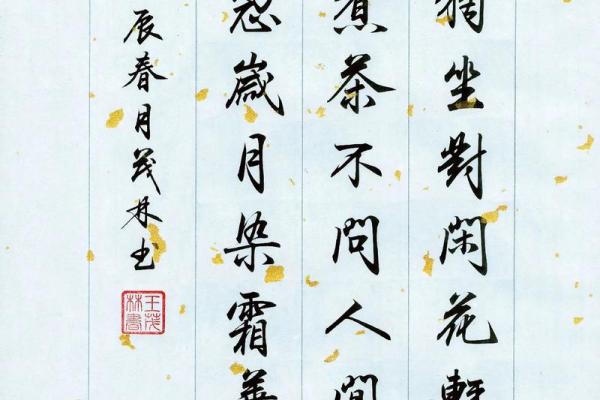 坐對閑花
煮茶不問人間
歲月染霜華
辰春月茂林书
王茂林書